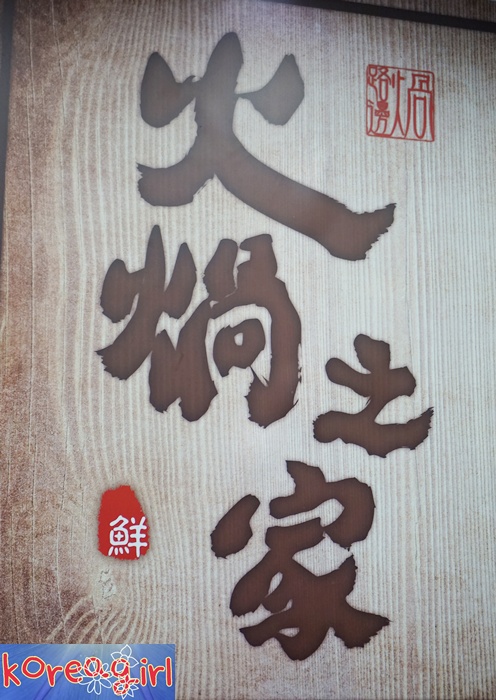 火煱之家
路邊煱
鮮
koreagirl